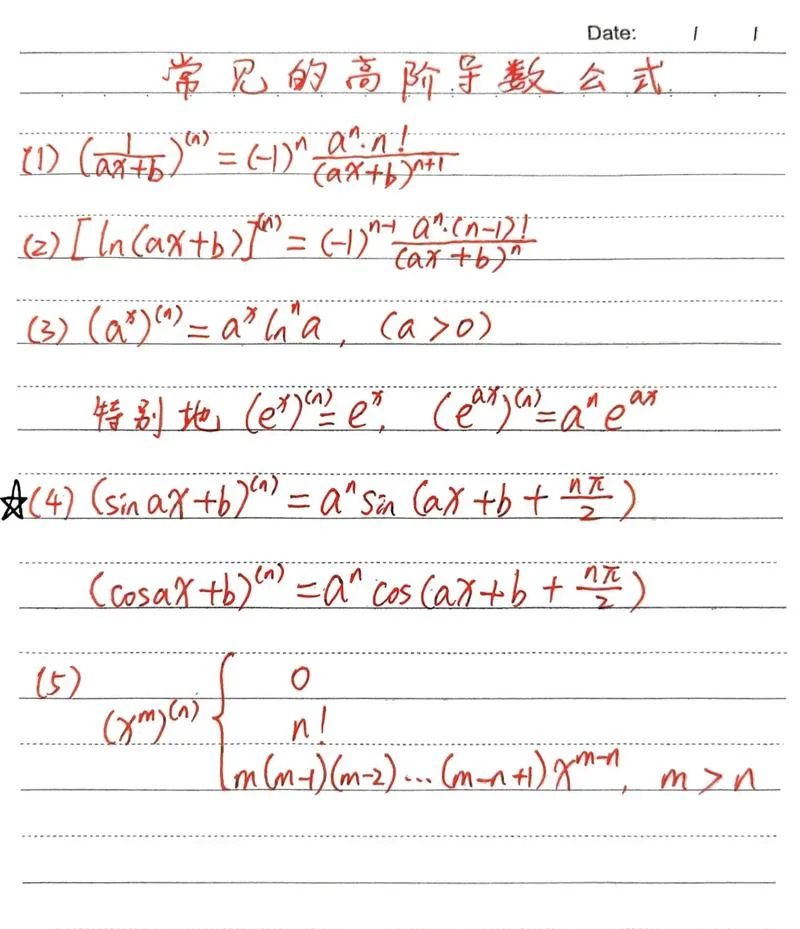 Date: / /
常见的高阶导数公式
(1) (1/(ax+b))^(n) = (-1)^n a^n·n!/(ax+b)^(n+1)
(2) [ln(ax+b)]^(n) = (-1)^(n-1) a^n·(n-1)!/(ax+b)^n
(3) (a^x)^(n) = a^x ln^n a, (a>0)
特别地 (e^x)^(n) = e^x, (e^(ax))^(n) = a^n e^(ax)
☆(4) (sin ax+b)^(n) = a^n sin (ax+b+nπ/2)
(cos ax+b)^(n) = a^n cos (ax+b+nπ/2)
(5) (x^m)^(n) { 0
n!
m(m-1)(m-2)…(m-n+1)x^(m-n), m>n